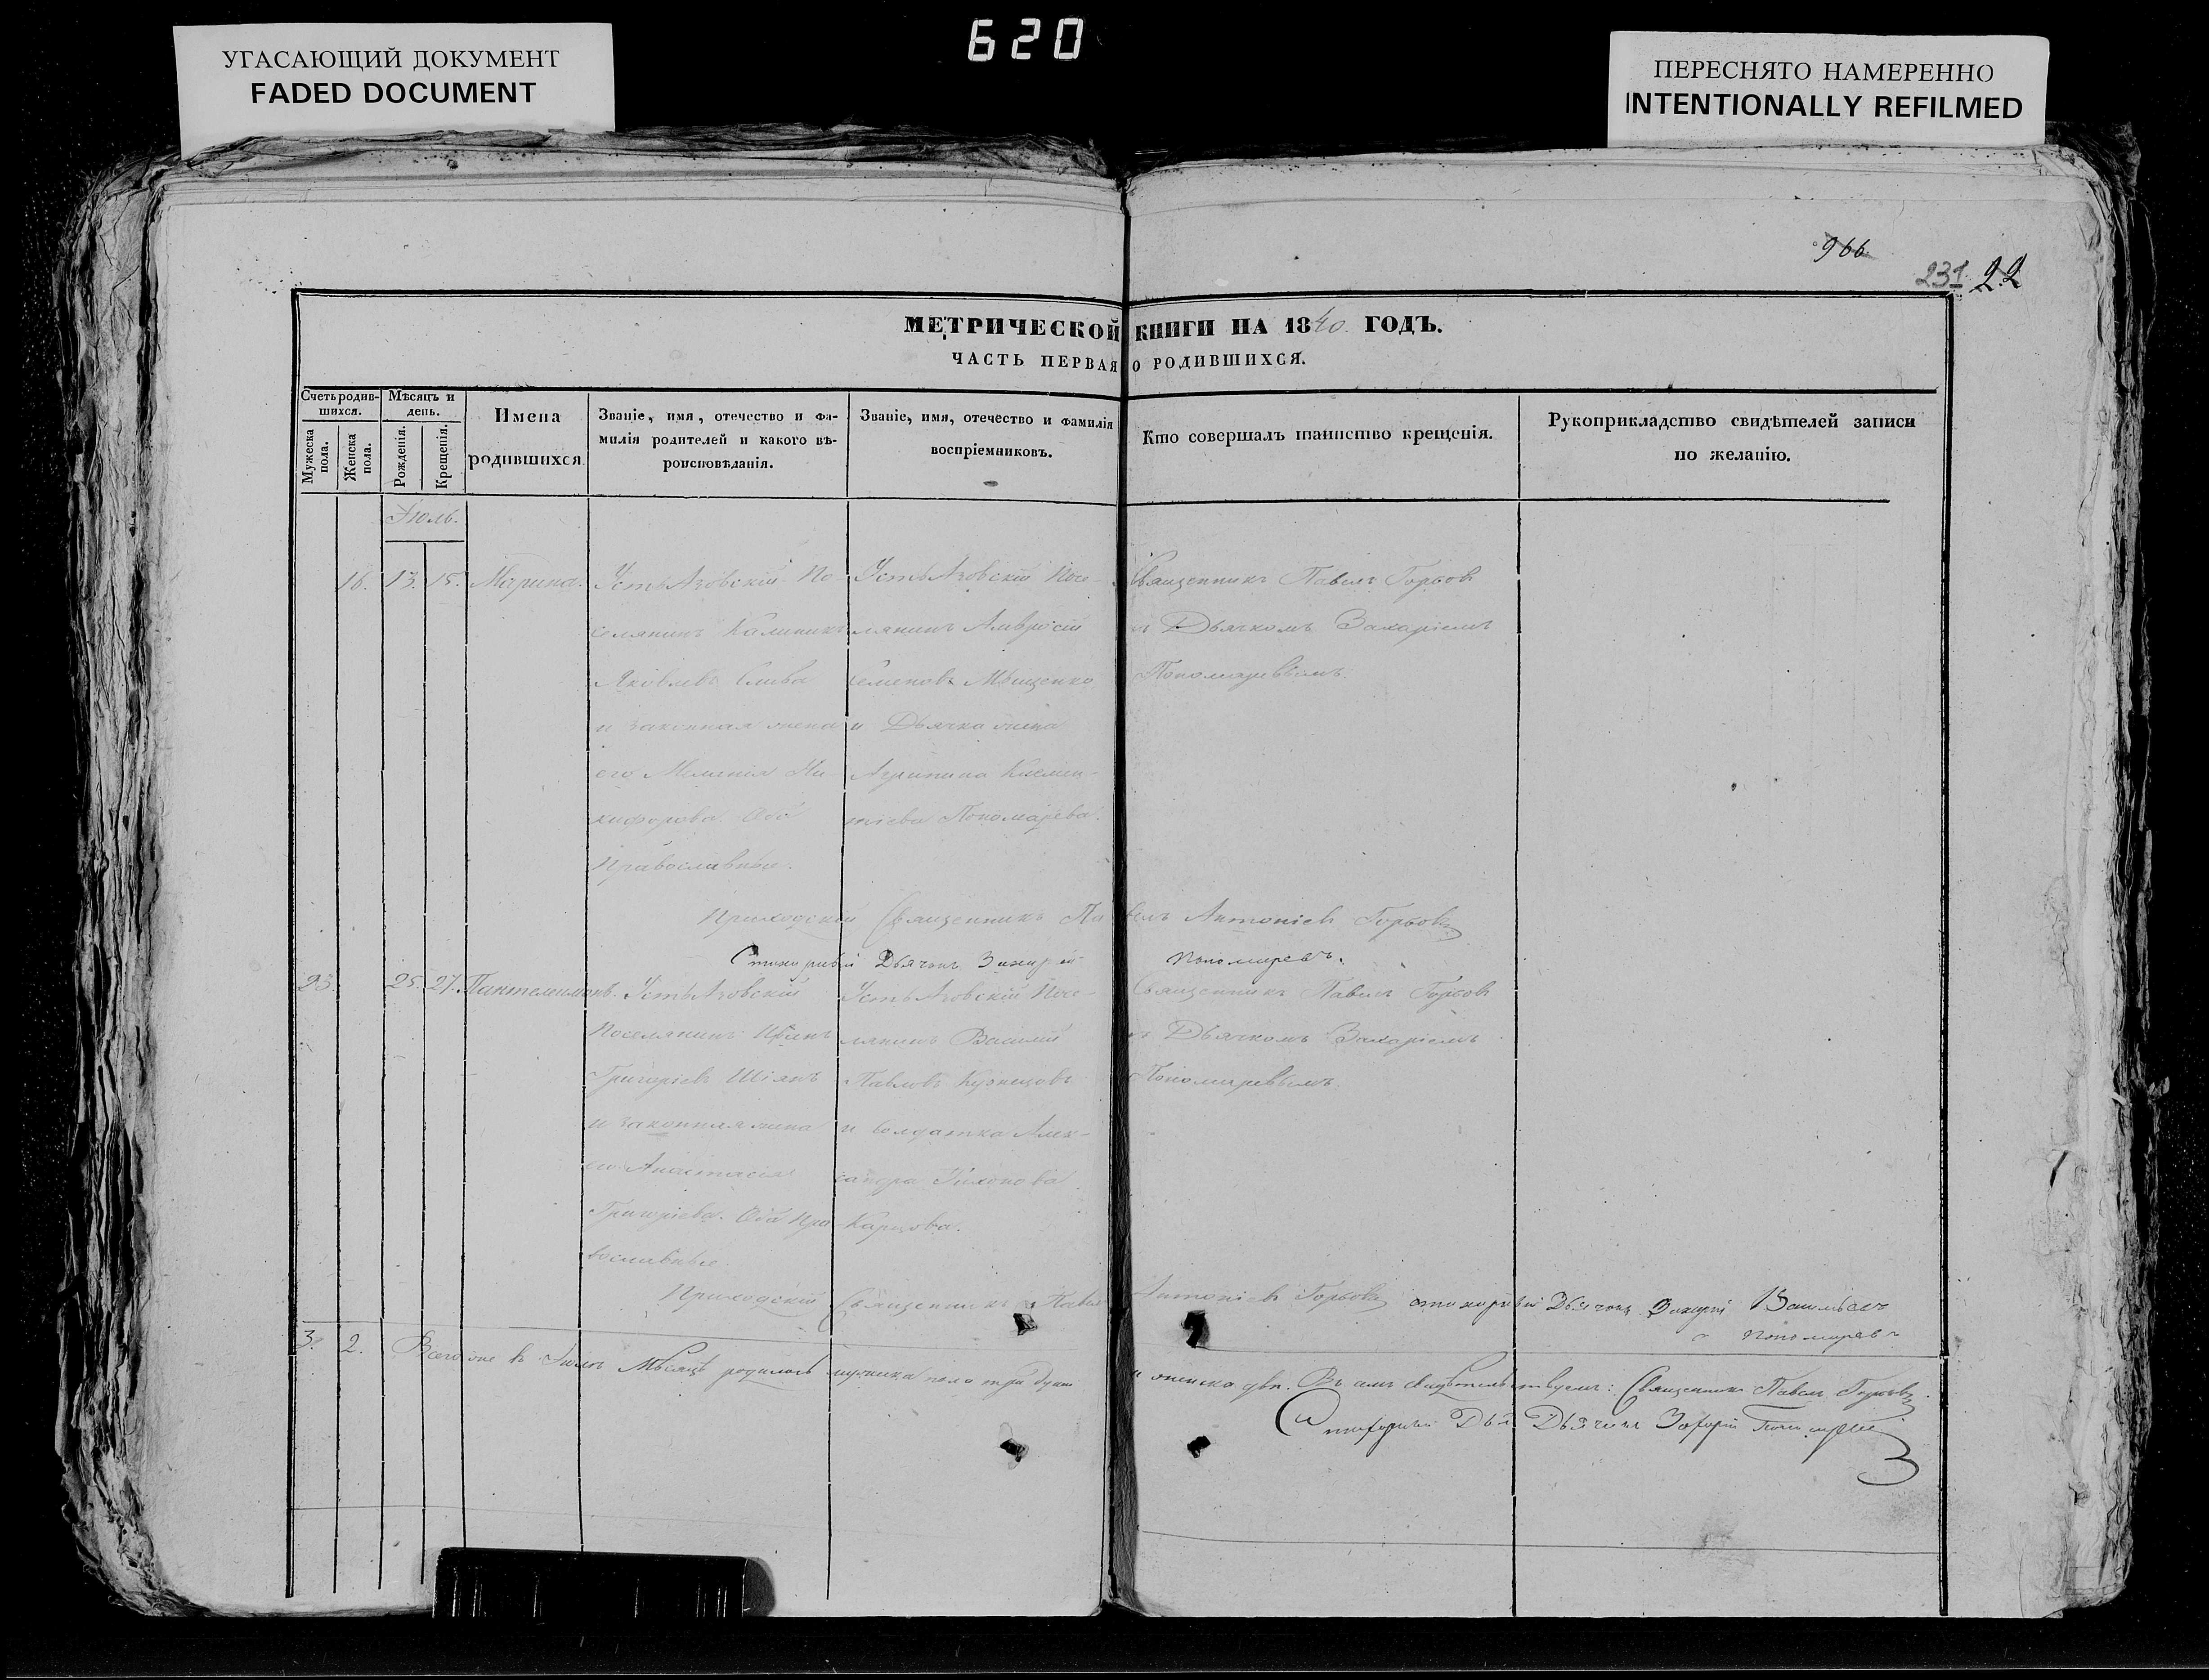 620
УГАСАЮЩИЙ ДОКУМЕНТ
FADED DOCUMENT
ПЕРЕСНЯТО НАМЕРЕННО
INTENTIONALLY REFILMED
966
231 22
МЕТРИЧЕСКОЙ КНИГИ НА 1840 ГОДЪ.
ЧАСТЬ ПЕРВАЯ О РОДИВШИХСЯ.
Счетъ родив-
шихся.
Мужеска
пола.
Женска
пола.
Мѣсяцъ и
день.
Рожденія.
Крещенія.
Имена
родившихся
Званіе, имя, отечество и фа-
милія родителей и какого вѣ-
роисповѣданія.
Званіе, имя, отечество и фамилія
воспріемниковъ.
Кто совершалъ таинство крещенія.
Рукоприкладство свидѣтелей записи
по желанію.
Іюль.
16. 13. 15. Марина.
УстьАзовскій По
селянинъ Калиникъ
Яковлевъ Слива
и законная жена
его Меланія Ни-
кифорова. Оба
Православные.
УстьАзовскій Посе-
лянинъ Амвросій
Семеновъ Мищенко
и Дьячка жена
Агрипина Климен-
тіева Пономарева.
Священникъ Павелъ Горбовъ
съ Дьячкомъ Захаріемъ
Пономаревымъ.
Приходскій Священникъ Павелъ Антоніевъ Горбовъ
Стихарный Дьячокъ Захарій Пономаревъ.
23. 25. 27. Пантелеимонъ.
УстьАзовскій
Поселянинъ
Григоріевъ Шіянъ
и законная жена
его Анастасія
Григоріева. Оба Пра-
вославные.
УстьАзовскій Посе-
лянинъ Василій
Павловъ Кузнецовъ
и Солдатка Алек-
сандра Тихонова
Карпова.
Священникъ Павелъ Горбовъ
съ Дьячкомъ Захаріемъ
Пономаревымъ.
Приходскій Священникъ Павелъ Антоніевъ Горбовъ стихарный Дьячокъ Захарій
Пономаревъ
3. 2. Всего же въ Іюлѣ Мѣсяцѣ родилось мужеска пола три души и женска двѣ. Въ чемъ свидѣтельствуемъ: Священникъ Павелъ Горбовъ.
Стихарный Дья Дьячокъ Захарій